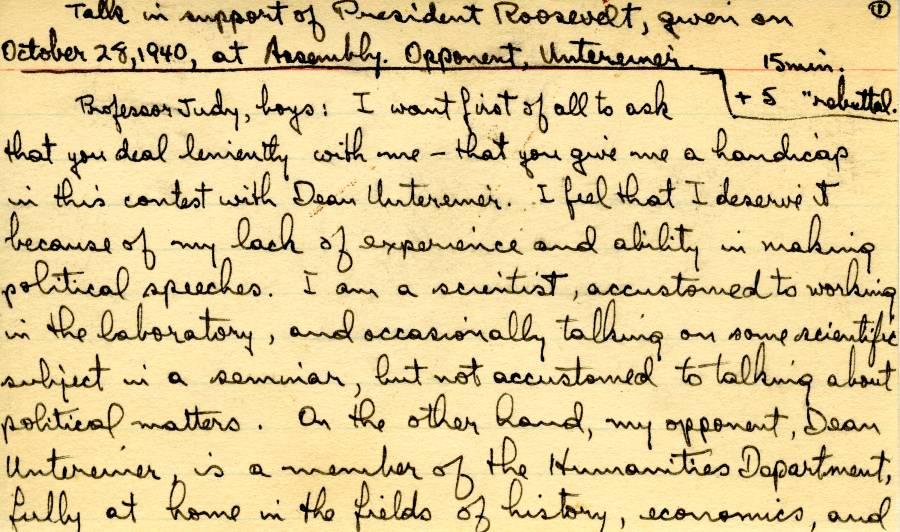 Talk in support of President Roosevelt, given on
①
October 28, 1940, at Assembly. Opponent, Untereiner.
15 min.
+ 5 " rebuttal.
Professor Judy, boys: I want first of all to ask
that you deal leniently with me – that you give me a handicap
in this contest with Dean Untereiner. I feel that I deserve it
because of my lack of experience and ability in making
political speeches. I am a scientist, accustomed to working
in the laboratory, and occasionally talking on some scientific
subject in a seminar, but not accustomed to talking about
political matters. On the other hand, my opponent, Dean
Untereiner, is a member of the Humanities Department,
fully at home in the fields of history, economics, and